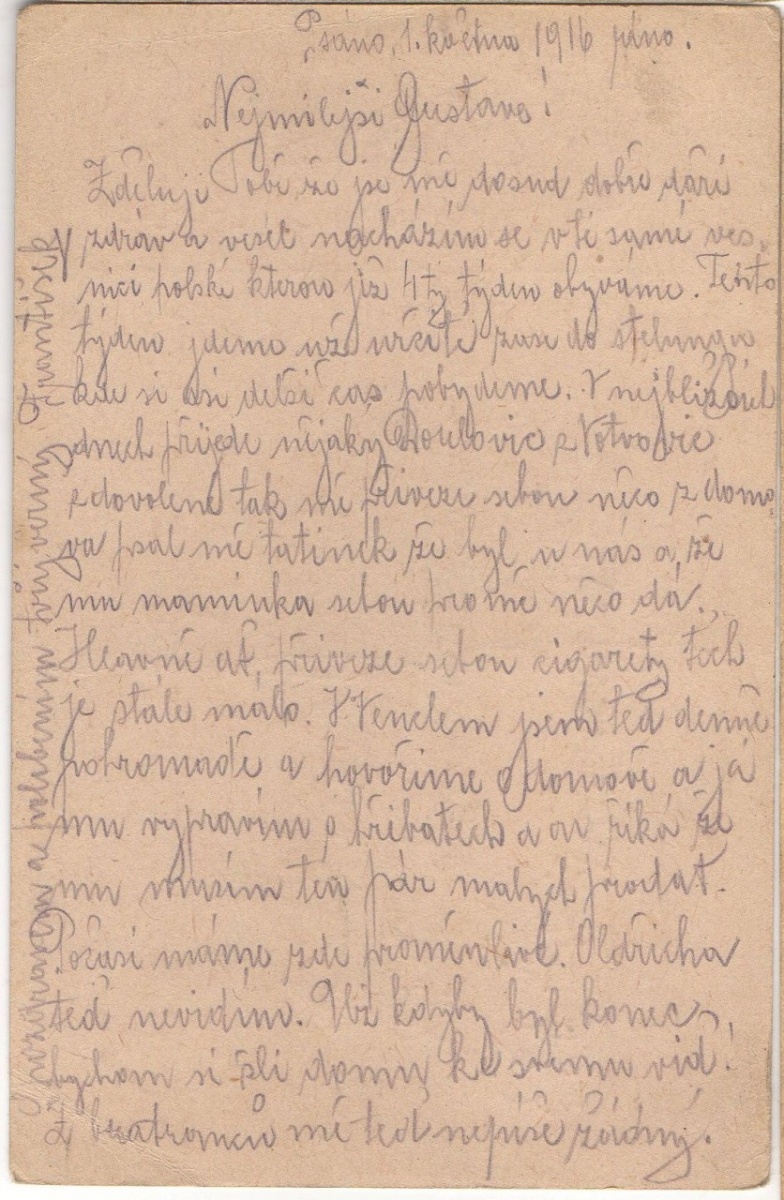 Psáno, 1. května 1916 ráno.
Nejmilejší Gustave!
Zděluji Tobě že se mě dosud dobře daří
zdráv a vesel nacházím se v té samé ves-
nici polské kterou již 4tý týden obýváme. Tento
týden jdeme už určitě zase do štelungu
kde si asi delší čas pobydeme. V nejbližších
dnech přijede nějaký z
z dovolené tak mě přiveze sebou něco z domo-
va psal mě tatínek že byl u nás a že
mu maminka sebou pro mě něco dá.
Hlavně ať přiveze sebou cigarety těch
je stále málo. S Venclem jsem teď denně
pohromadě a hovoříme o domově a já
mu vypravím o hříbatech a on říká že
mu musím ten pár malých prodat.
Počasí máme zde proměnlivé. Oldřicha
teď nevidím. Už kdyby byl konec,
bychom si šli domů ke svému viď!
Z bratranců mě teď nepíše žádný.
S pozdravem a políbením tvůj věrný František